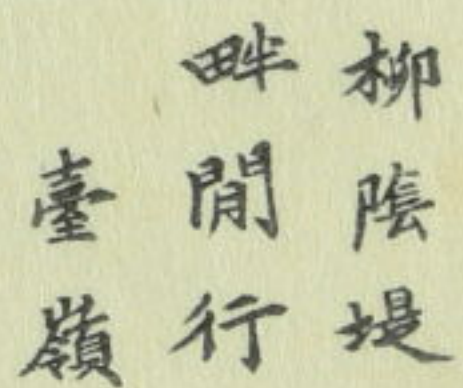 柳陰堤
畔閒行
臺嶺